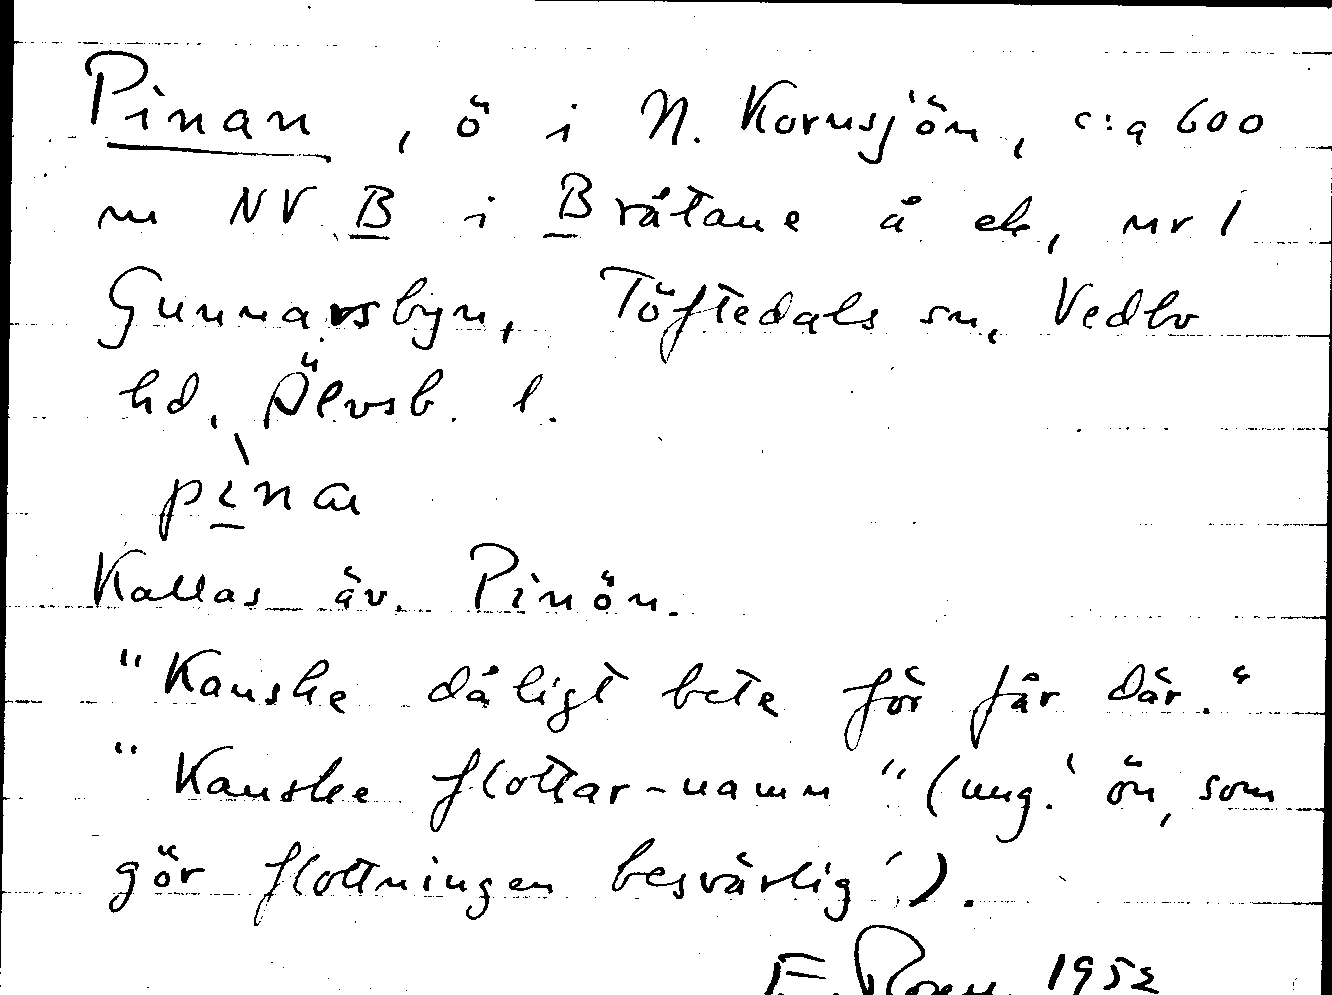 Pinan, ö i N. Kornsjön, c:a 600
m NV B i Bråtane å ek, nr 1
Gunnarsbyn, Töftedals sn, Vedbo
hd, Älvsb. l.
pìna
Kallas äv. Pinön.
"Kanske dåligt bete för får där."
"Kanske flottar-namn" (ung. 'ön, som
gör flottningen besvärlig').
F. 1952